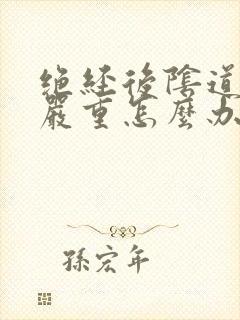 絕經後陰道
嚴重怎麼办
孫宏年